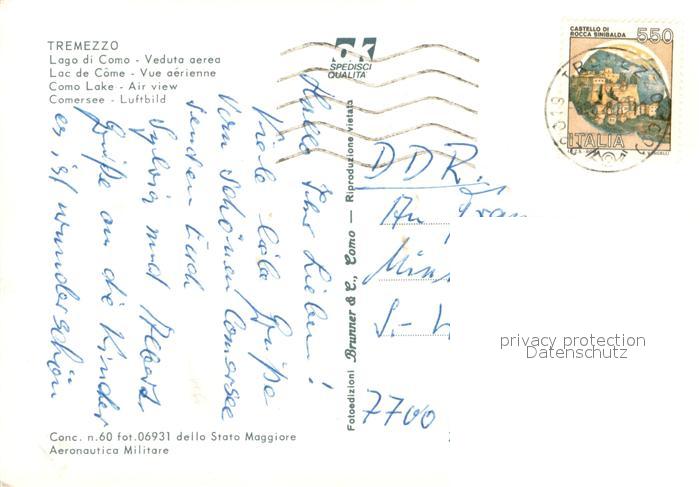 TREMEZZO
Lago di Como - Veduta aerea
Lac de Côme - Vue aérienne
Como Lake - Air view
Comersee - Luftbild
ok
SPEDISCI
QUALITA'
CASTELLO DI
ROCCA SINIBALDA
550
ITALIA
Hallo Ihr Lieben!
Viele liebe Grüße
vom schönen Comersee
senden Euch
Sylvia und Albert
Grüße an die Kinder
es ist wunderschön
DDR
An
7700
Fotoedizioni Brunner & C., Como — Riproduzione vietata
privacy protection
Datenschutz
Conc. n.60 fot.06931 dello Stato Maggiore
Aeronautica Militare